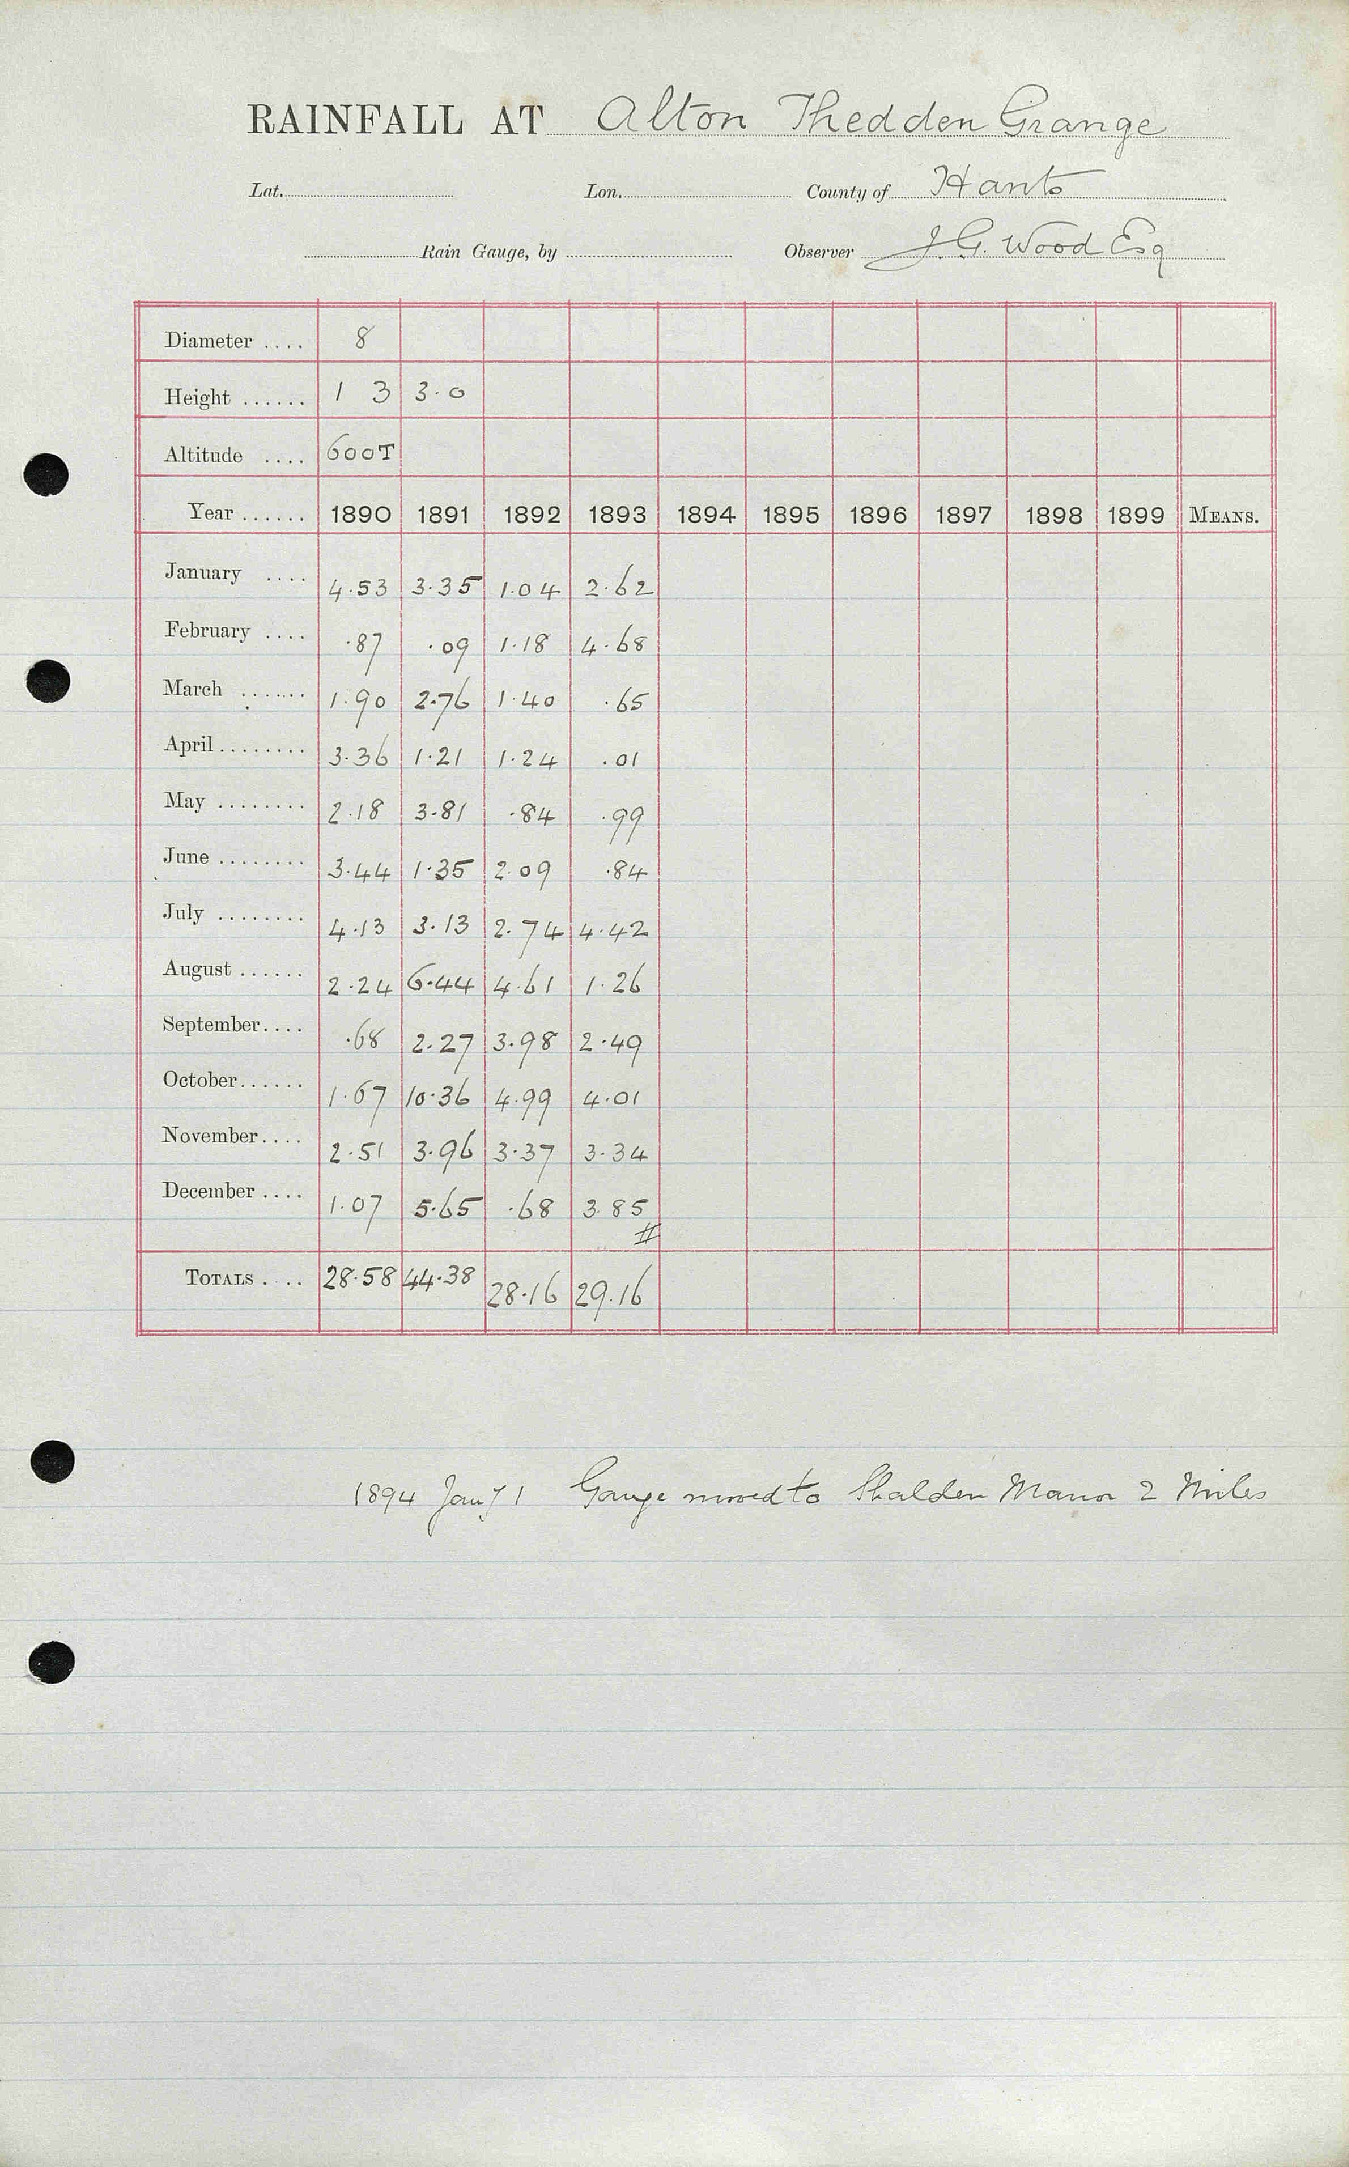 RAINFALL AT Alton Thedden Grange
Lat. Lon. County of Hants
Rain Gauge, by Observer J. G. Wood Esq
Diameter .... 8
Height ...... 1 3 3.0
Altitude .... 600T
Year ...... 1890 1891 1892 1893 1894 1895 1896 1897 1898 1899 MEANS.
January .... 4.53 3.35 1.04 2.62
February .... .87 .09 1.18 4.68
March ....... 1.90 2.76 1.40 .65
April ........ 3.36 1.21 1.24 .01
May ........ 2.18 3.81 .84 .99
June ........ 3.44 1.35 2.09 .84
July ........ 4.13 3.13 2.74 4.42
August ...... 2.24 6.44 4.61 1.26
September.... .68 2.27 3.98 2.49
October...... 1.67 10.36 4.99 4.01
November.... 2.51 3.96 3.37 3.34
December .... 1.07 5.65 .68 3.85
#
TOTALS .... 28.58 44.38 28.16 29.16
1894 Jany 1 Gauge moved to Shalden Manor 2 Miles